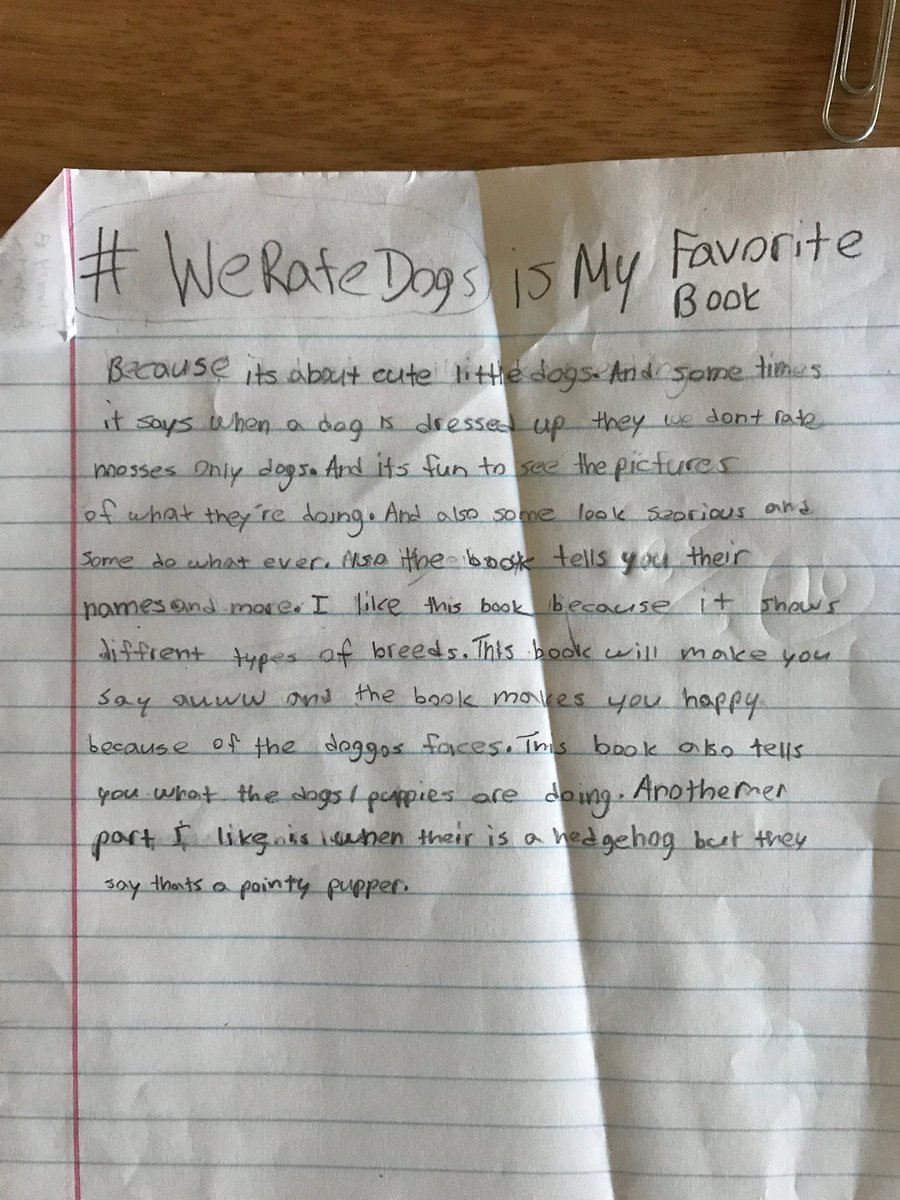 #WeRateDogs is My Favorite Book
Because its about cute little dogs. And some times
it says when a dog is dressed up they we dont rate
mosses only dogs. And its fun to see the pictures
of what they're doing. And also some look searious and
some do what ever. Also the book tells you their
names and more. I like this book because it shows
diffrent types of breeds. This book will make you
say auww and the book makes you happy
because of the doggos faces. This book also tells
you what the dogs/puppies are doing. Anothemer
part I like is when their is a hedgehog but they
say thats a pointy pupper.